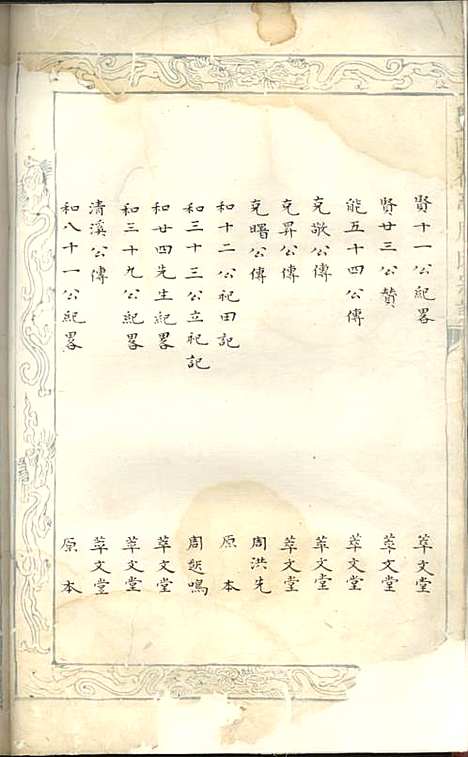 賢十一公紀畧 萃文堂
賢廿三公贊 萃文堂
能五十四公傳 萃文堂
克敬公傳 萃文堂
克昇公傳 萃文堂
克曙公傳 周洪先
和十二公祀田記 原本
和三十三公立祀記 周鳴
和廿四先生紀畧 萃文堂
和三十九公紀畧 萃文堂
清溪公傳 萃文堂
和八十一公紀畧 原本